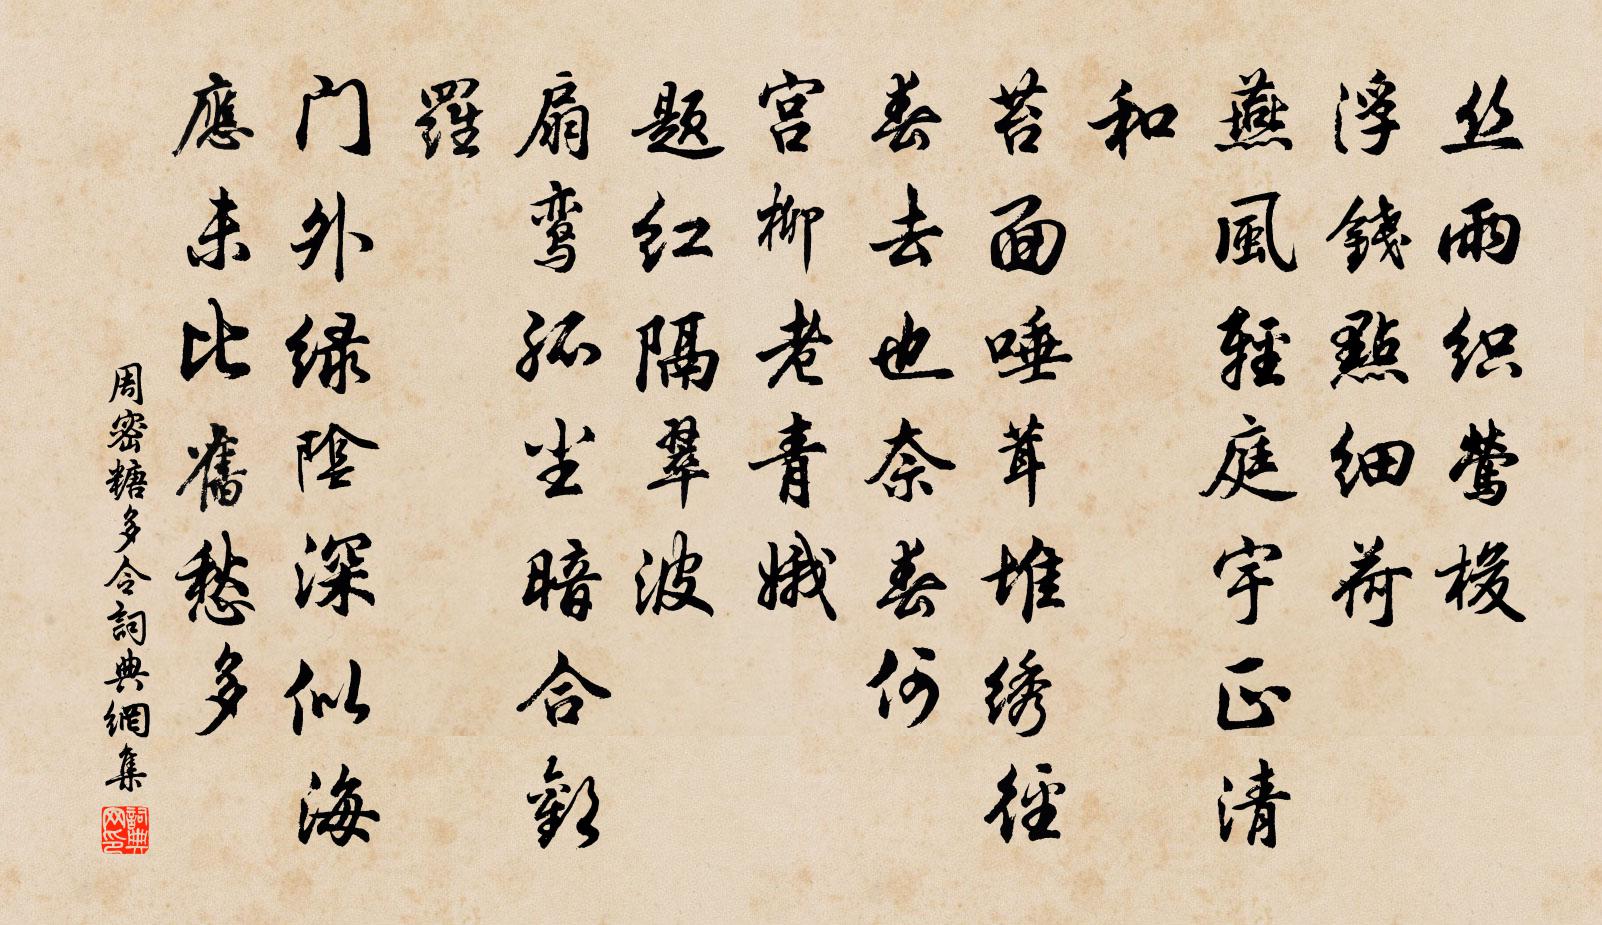 丝雨织莺梭
浮錢點细荷
燕風輕庭宇正清
和
苔面唾茸堆绣径
春去也奈春何
宫柳老青娥
题红隔翠波
扇鸾孤尘暗合歡
羅
门外绿陰深似海
應未比舊愁多
周密糖多令詞典網集
詞典网印